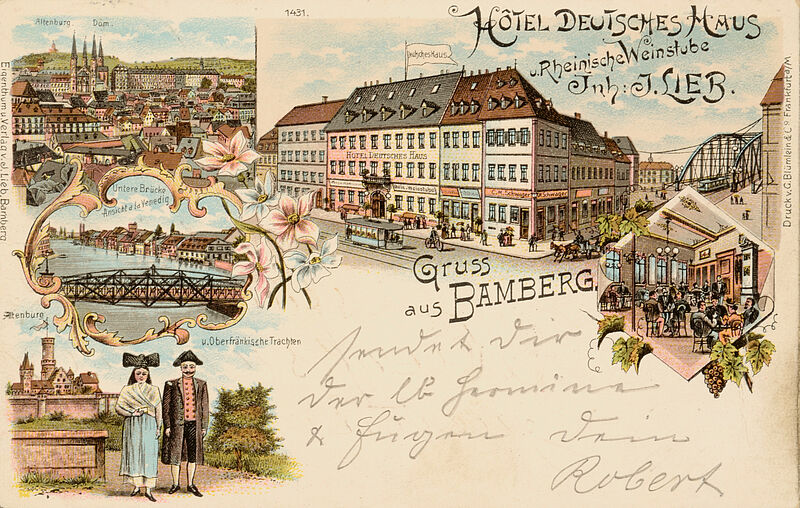 1431.
Altenburg. Dom.
HÔTEL DEUTSCHES HAUS
u. Rheinische Weinstube
Inh: J. LIEB.
Deutsches Haus
HÔTEL DEUTSCHES HAUS
Untere Brücke
Ansicht a la Venedig
GRUSS
aus BAMBERG.
Altenburg
u. Oberfränkische Trachten
sendet dir
der lb. Hermine
& Eugen dein
Robert
Eigenthum u. Verlag v. J. Lieb, Bamberg
Druck v. C. Blümlein & Co. Frankfurt a/M